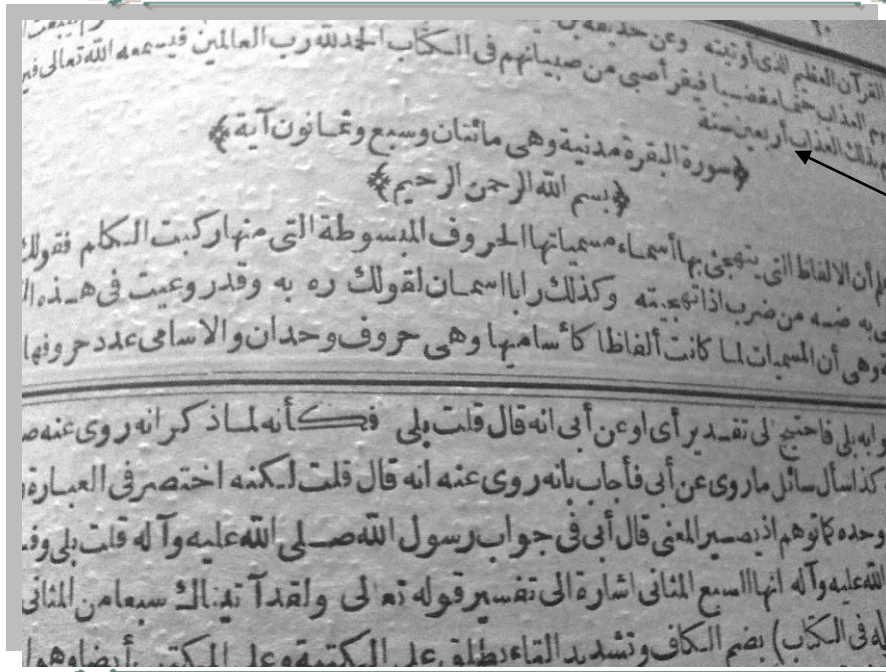 ٦٠
القرآن العظيم الذى أوتيته وعن حذيفة
العذاب حتما مقضيا فيقرأ صبى من صبيانهم فى الكتاب الحمد لله رب العالمين فيسمعه الله تعالى
بذلك العذاب أربعين سنة
﴿سورة البقرة مدنية وهى مائتان وسبع وثمانون آية﴾
﴿بسم الله الرحمن الرحيم﴾
أن الالفاظ التى يتهجى بها أسماء مسمياتها الحروف المبسوطة التى منها ركبت الكلم فقولك
به ضه من ضرب اذا تهجيته وكذلك را با اسمان لقولك ره به وقد روعيت فى هذه
وهى أن المسميات لما كانت ألفاظا كأساميها وهى حروف وحدان والاسامى عدد حروفها
بلى فاحتيج الى تقدير أى او عن أبى انه قال قلت بلى فكأنه لما ذكر انه روى عنه
كذا سأل سائل ما روى عن أبى فأجاب بانه روى عنه انه قال قلت لكنه اختصر فى العبارة
وحده كما توهم اذ يصير المعنى قال أبى فى جواب رسول الله صلى الله عليه وآله قلت بلى
الله عليه وآله انها السبع المثانى اشارة الى تفسير قوله تعالى ولقد آتيناك سبعا من المثانى
فى الكتاب) بضم الكاف وتشديد التاء يطلق على الكتبة وعلى المكتب أيضا وهو